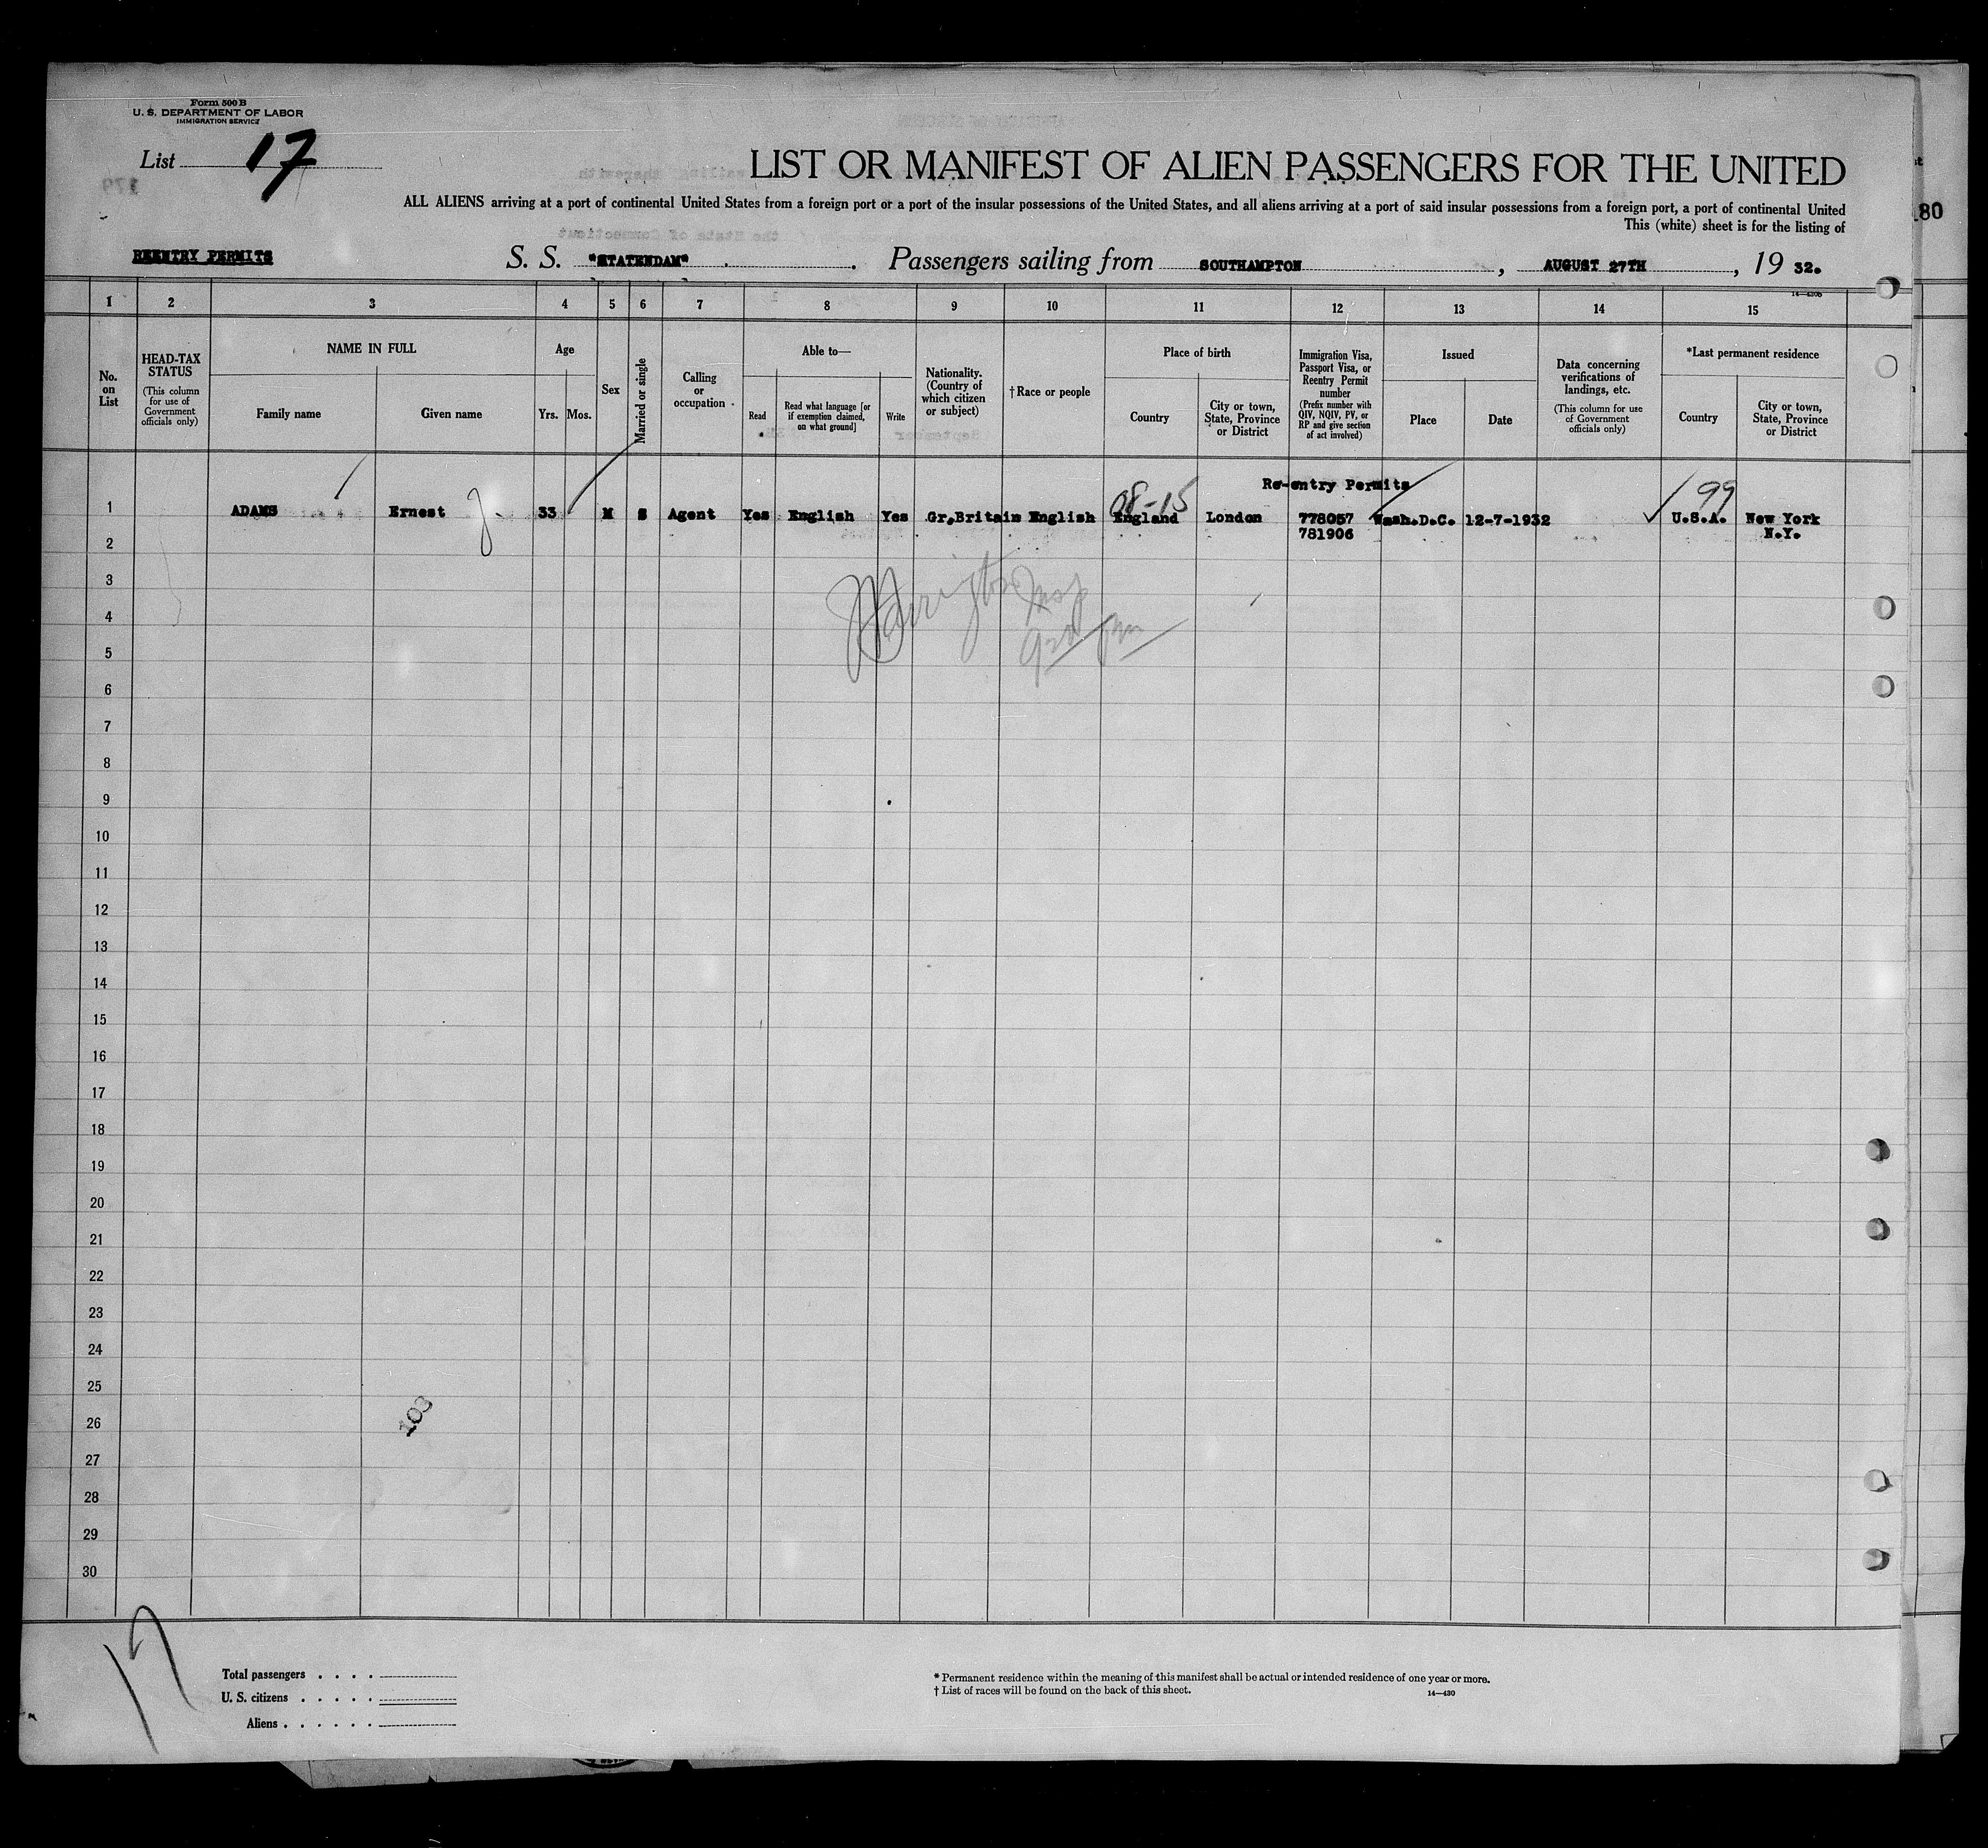 Form 500 B
U. S. DEPARTMENT OF LABOR
IMMIGRATION SERVICE
List 17
LIST OR MANIFEST OF ALIEN PASSENGERS FOR THE UNITED
ALL ALIENS arriving at a port of continental United States from a foreign port or a port of the insular possessions of the United States, and all aliens arriving at a port of said insular possessions from a foreign port, a port of continental United
This (white) sheet is for the listing of
80
REENTRY PERMITS S. S. "STATENDAM" Passengers sailing from SOUTHAMPTON, AUGUST 27TH, 19 32.
1 2 3 4 5 6 7 8 9 10 11 12 13 14 15
No. on List
HEAD-TAX STATUS
(This column for use of Government officials only)
NAME IN FULL
Family name Given name
Age
Yrs. Mos.
Sex
Married or single
Calling or occupation
Able to—
Read
Read what language [or if exemption claimed, on what ground]
Write
Nationality. (Country of which citizen or subject)
†Race or people
Place of birth
Country
City or town, State, Province or District
Immigration Visa, Passport Visa, or Reentry Permit number
(Prefix number with QIV, NQIV, PV, or RP and give section of act involved)
Issued
Place Date
Data concerning verifications of landings, etc.
(This column for use of Government officials only)
*Last permanent residence
Country
City or town, State, Province or District
Re-entry Permits
08-15
99
1 ADAMS Ernest J. 33 M S Agent Yes English Yes Gr.Britain English England London 778057 Wash.D.C. 12-7-1932 U.S.A. New York
781906 N.Y.
2
3
4
5
6
7
8
9
10
11
12
13
14
15
16
17
18
19
20
21
22
23
24
25
103
26
27
28
29
30
17
Total passengers
U. S. citizens
Aliens
* Permanent residence within the meaning of this manifest shall be actual or intended residence of one year or more.
† List of races will be found on the back of this sheet.
14—430